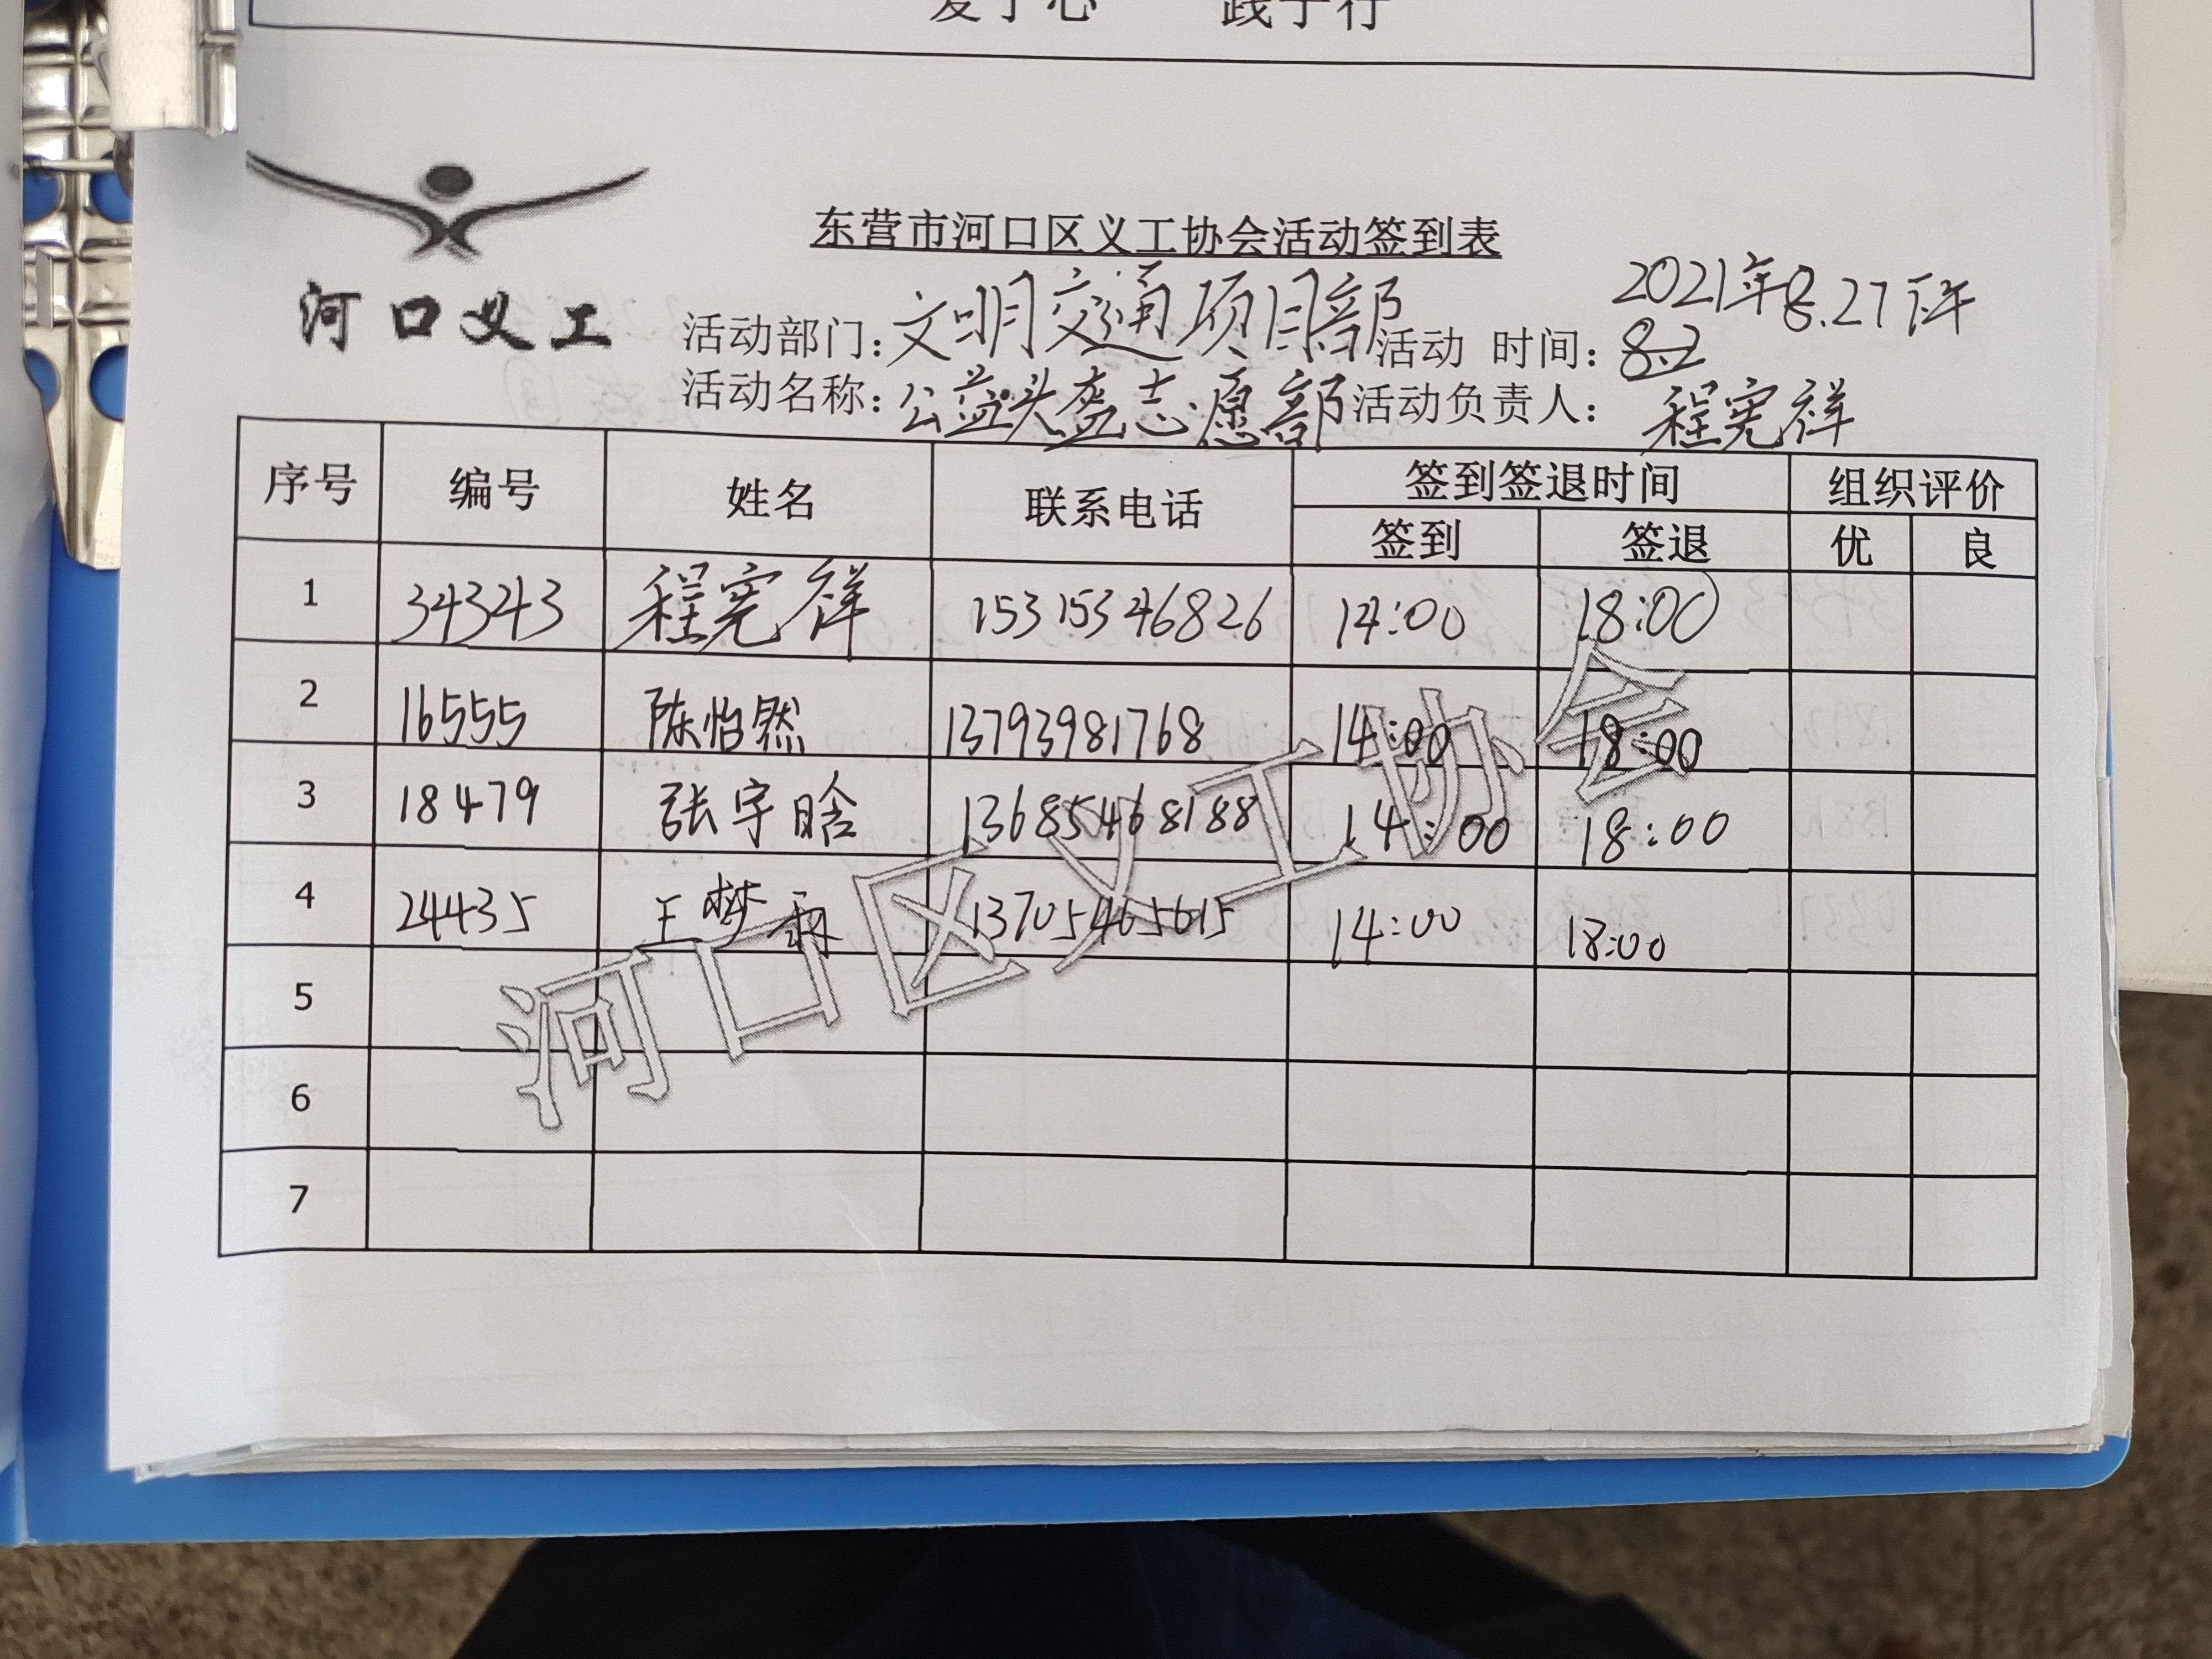 爱于心 践于行
河口义工
东营市河口区义工协会活动签到表
2021年8.27下午
活动部门:文明交通项目部 活动 时间:
活动名称:公益头盔志愿部 活动负责人: 程宪祥
序号 编号 姓名 联系电话 签到签退时间 组织评价
签到 签退 优 良
1 34343 程宪祥 15315346826 14:00 18:00
2 16555 陈怡然 13793981768 14:00 18:00
3 18479 张宇晗 13685468188 14:00 18:00
4 24435 王梦 13705465615 14:00 18:00
5
6
7
河口区义工协会